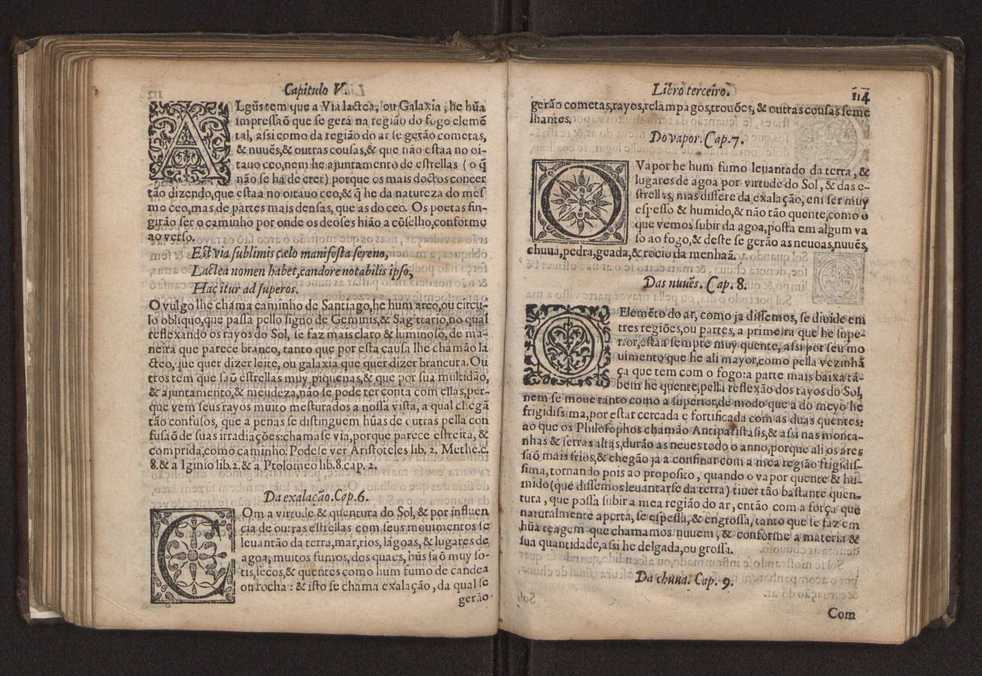 Capitulo V.
ALgũs tem que a Via lactea, ou Galaxia, he hũa
impressaõ que se gera na região do fogo elemẽ
tal, assi como da região do ar se gerão cometas,
& nuuẽs, & outras cousas, & que não estaa no oi-
tauo ceo, nem he ajuntamento de estrellas (o q̃
não se ha de crer) porque os mais doctos concer
tão dizendo, que estaa no oitauo ceo, & q̃ he da natureza do mes
mo ceo, mas de partes mais densas, que as do ceo. Os poetas fin-
girão ser o caminho por onde os deoses hião a cõselho, conforme
ao verso.
Est via sublimis cælo manifesta sereno,
Lactea nomen habet, candore notabilis ipso,
Hac itur ad superos.
O vulgo lhe chama caminho de Santiago, he hum arco, ou circu-
lo obliquo, que passa pello signo de Geminis, & Sagitario, no qual
reflexando os rayos do Sol, se faz mais claro & luminoso, de ma-
neira que parece branco, tanto que por esta causa lhe chamão la
cteo, que quer dizer leite, ou galaxia que quer dizer brancura. Ou
tros tem que saõ estrellas muy piquenas, & que por sua multidão,
& ajuntamento, & meudeza, não se pode ter conta com ellas, por-
que vem seus rayos muito mesturados a nossa vista, a qual chegã
tão confusos, que a penas se distinguem hũas de outras pella con
fusaõ de suas irradiações: chamase via, porque parece estreita, &
comprida, como caminho. Podese ver Aristoteles lib. 2. Methe. c.
8. & a Iginio lib. 2. & a Ptolomeo lib. 8. cap. 2.
Da exalação. Cap. 6.
COm a virtude & quentura do Sol, & por influen
cia de outras estrellas com seus mouimentos se
leuantão da terra, mar, rios, lagoas, & lugares de
agoa, muitos fumos, dos quaes, hũs saõ muy so-
tis, secos, & quentes como hum fumo de candea
ou rocha: & isto se chama exalação, da qual se
gerão
Libro terceiro.
114
gerão cometas, rayos, relampagos, trouões, & outras cousas seme
lhantes.
Do vapor. Cap. 7.
O Vapor he hum fumo leuantado da terra, &
lugares de agoa por virtude do Sol, & das e-
strellas, mas differe da exalação, em ser muy
espesso & humido, & não tão quente, como o
que vemos subir da agoa, posta em algum va
so ao fogo, & deste se gerão as neuoas, nuuẽs,
chuua, pedra, geada, & rocio da menhaã.
Das nuuẽs. Cap. 8.
O Elemẽto do ar, como ja dissemos, se diuide em
tres regiões, ou partes, a primeira que he supe-
rior, estaa sempre muy quente, assi por seu mo
uimento que he ali mayor, como pella vezinhã
ça que tem com o fogo: a parte mais baixa tã-
bem he quente, pella reflexão dos rayos do Sol,
nem se moue tanto como a superior, de modo que a do meyo he
frigidissima, por estar cercada e fortificada com as duas quentes:
ao que os Philosophos chamão Antiparistasis, & assi nas monta-
nhas & serras altas, durão as neues todo o anno, porque ali os ares
saõ mais frios, & chegão ja a confinar com a mea região frigidis-
sima, tornando pois ao proposito, quando o vapor quente & hu-
mido (que dissemos leuantarse da terra) tiuer tão bastante quen-
tura, que possa subir a mea região do ar, então com a força que
naturalmente aperta, se espessa, & engrossa, tanto que se faz em
hũa reçagem que chamamos nuuem, & conforme a materia &
sua quantidade, assi he delgada, ou grossa.
Da chuua. Cap. 9.
Com